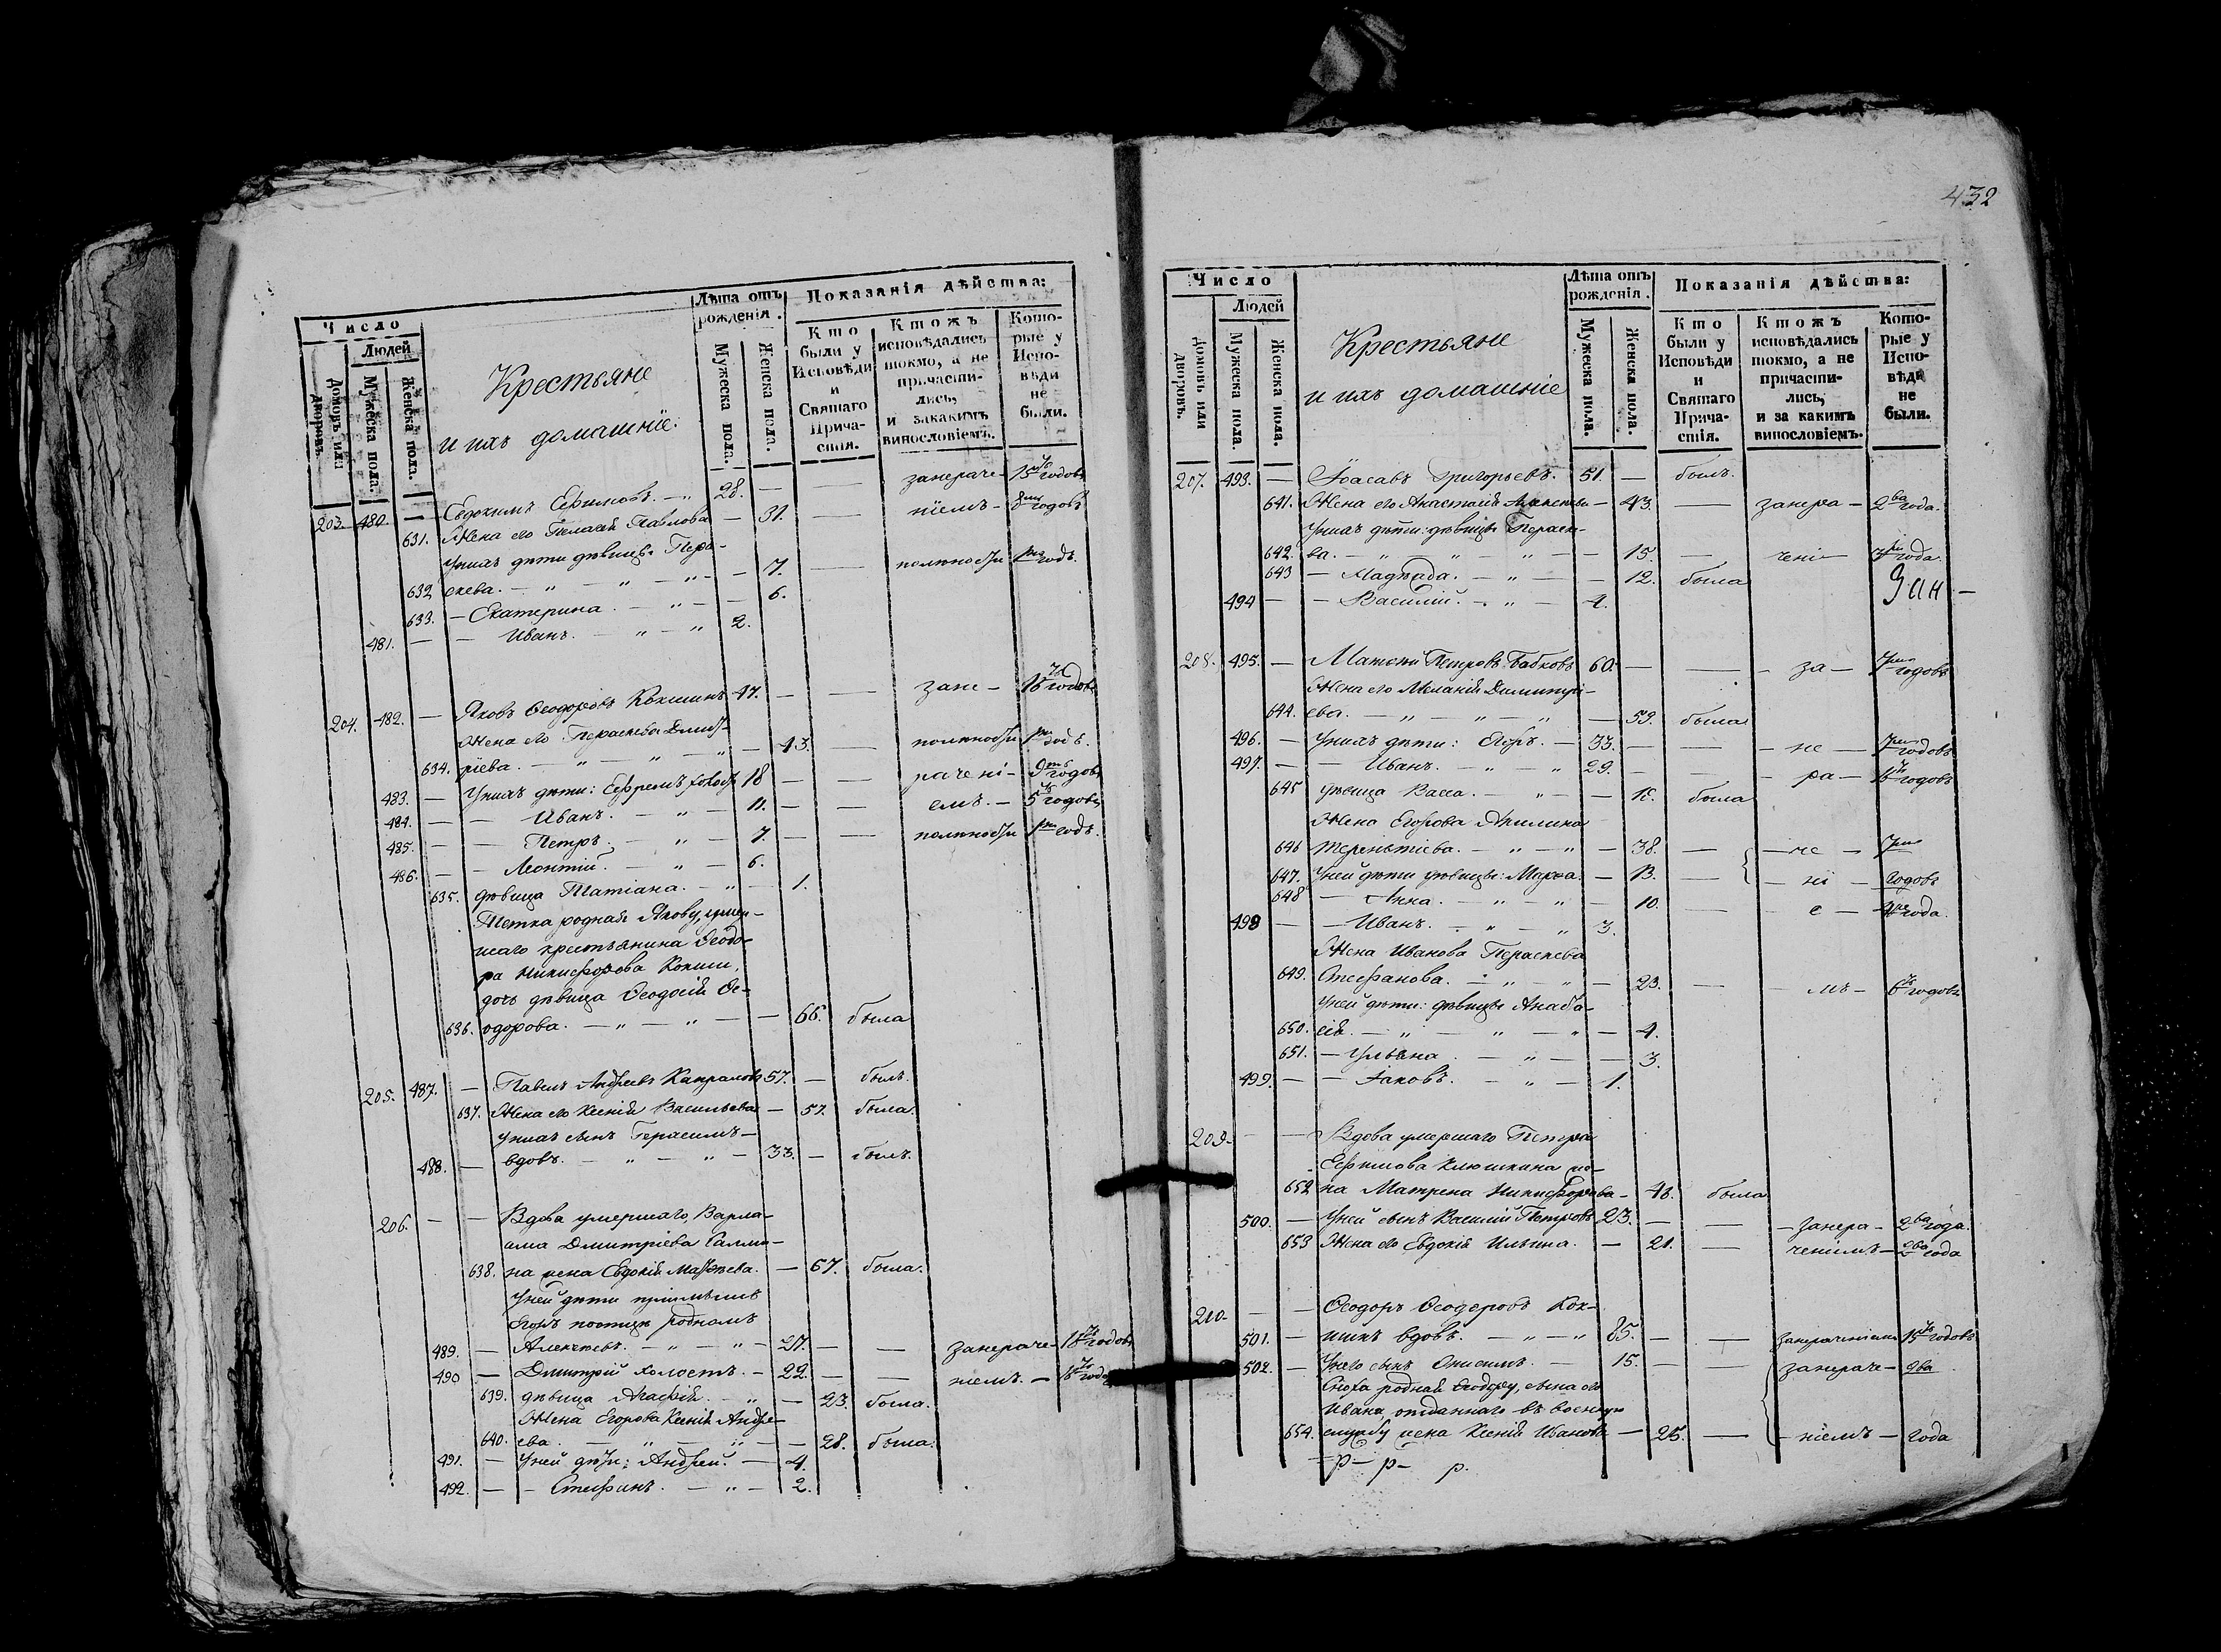 Число
Людей
Домовъ или дворовъ.
Мужеска пола.
Женска пола.
Крестьяне
и ихъ домашніе.
Лѣта отъ рожденія.
Мужеска пола.
Женска пола.
Показанія дѣйства:
Кто были у Исповѣди и Святаго Причастія.
Ктожъ исповѣдались токмо, а не причастились, и закакимъ винословіемъ.
Которые у Исповѣди не были.
203. 480. — Евдокимъ Ефимовъ. — 28. — — занераче- 15 годовъ
631. Жена его Пелагія Павлова — 31. — ніемъ — 8 годовъ
Унихъ дѣти: дѣвицы Пера-
632 скева. — — 7. — полност 1 годъ.
633. — Екатерина. — — 6.
481. — — Иванъ. — 2.
204. 482. — Яковъ Ѳеодоровъ Кокшинъ 47. — — зане — 16 годовъ
Жена его Пераскева Дмит-
634. ріева. — — 43. — 1 годъ.
483. — Унихъ дѣти: Ефремъ холостъ 18 — — рачені — 9 годовъ
484. — — Иванъ. — 11. — — емъ. — 5 годовъ
485. — — Петръ. — 7. — — 1 годъ.
486. — — Леонтій. — 6.
635. дѣвица Татіана. — 1.
Тетка родная Якову, умер-
шаго крестьянина Ѳеодо-
ра Никифорова Кокши,
дочь дѣвица Ѳеодосія Ѳе-
636. одорова. — 66. была
205. 487. — Павелъ Андреевъ 57. — былъ.
637. Жена его Ксенія Васильева — 57. была.
Унихъ сынъ Герасимъ —
488. — вдовъ. — 33. — былъ.
206. — — Вдова умершаго Варла-
ама Дмитріева
638. на жена Евдокія Матвѣева. — 67. была.
Уней дѣти
родномъ
489. — Алексѣевъ. — 27. — — занераче- 18 годовъ
490 — Дмитрій холостъ. — 22. — — ніемъ. — 16 годовъ
639. дѣвица Агафія. — 23. была.
Жена Егорова Ксенія Андре-
640. ева. — 28. была.
491. — Уней дѣти: Андрей. — 4.
492. — — Стефанъ. — 2.
432
Число
Людей
Домовъ или дворовъ.
Мужеска пола.
Женска пола.
Крестьяне
и ихъ домашніе
Лѣта отъ рожденія.
Мужеска пола.
Женска пола.
Показанія дѣйства:
Кто были у Исповѣди и Святаго Причастія.
Ктожъ исповѣдались токмо, а не причастились, и за какимъ винословіемъ.
Которые у Исповѣди не были.
207. 493. — Іоасавъ Григорьевъ. 51. — былъ.
641. Жена его Анастасія Алексѣева — 43. — занера — 2 года.
Унихъ дѣти: дѣвицы Пераске-
642. ва. — 15. — чені — года.
643 — Надежда. — 12. была
494 — — Василій. — 4.
208. 495. — Матвѣй Петровъ Бабковъ 60. — — за — годовъ
Жена его Меланія Димитрі-
644. ева. — 59. была
496. — Унихъ дѣти: Егоръ. — 33. — — не — годовъ
497. — — Иванъ. — 29. — — ра — 15 годовъ
645 дѣвица Васса. — 18. была
Жена Егорова Акилина
646 Терентіева. — 38. — — че —
647. Уней дѣти дѣвицы: Марѳа. — 13. — — ні — годовъ
648 — Анна. — 10. — — е — года.
498 — — Иванъ. — 3.
Жена Иванова Пераскева
649. Стефанова. — 23. — — мъ — 6 годовъ
Уней дѣти: дѣвицы Анаста-
650. сія. — 4.
651. — Ульяна. — 3.
499. — — Іаковъ. — 1.
209. — — Вдова умершаго Петра
Ефимова Клюшкина же-
652 на Матрена Никифорова — 48. была
500. — Уней сынъ Василій Петровъ 23. — — — занера — 2 года.
653 Жена его Евдокія Ильина. — 21. — ченіемъ — 2 года
210. — — Ѳеодоръ Ѳеодоровъ Кок-
501. — шинъ вдовъ. — 85. — — занераченіемъ 15 годовъ
502. — Унего сынъ Онисимъ. — 15. — — занераче — два
Сноха родная Ѳеодору, сына его
Ивана, отданнаго въ военную
654. службу жена Ксенія Иванова — 25. — — ніемъ — года